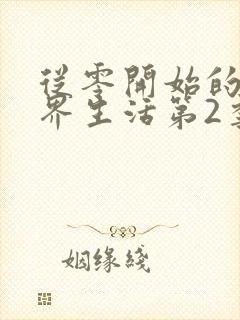 從零開始的
界生活第2季
姻缘綫